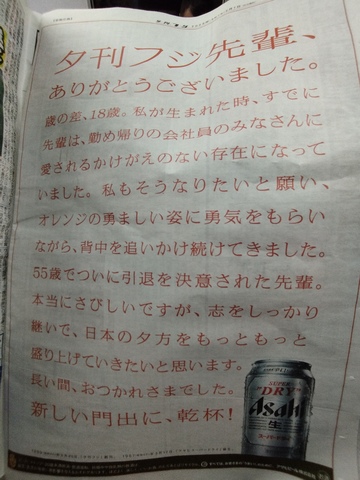 夕刊フジ先輩、
ありがとうございました。
歳の差、18歳。私が生まれた時、すでに
先輩は、勤め帰りの会社員のみなさんに
愛されるかけがえのない存在になって
いました。私もそうなりたいと願い、
オレンジの勇ましい姿に勇気をもらい
ながら、背中を追いかけ続けてきました。
55歳でついに引退を決意された先輩。
本当にさびしいですが、志をしっかり
継いで、日本の夕方をもっともっと
盛り上げていきたいと思います。
長い間、おつかれさまでした。
新しい門出に、乾杯！
SUPER
DRY
Asahi
生
スーパードライ